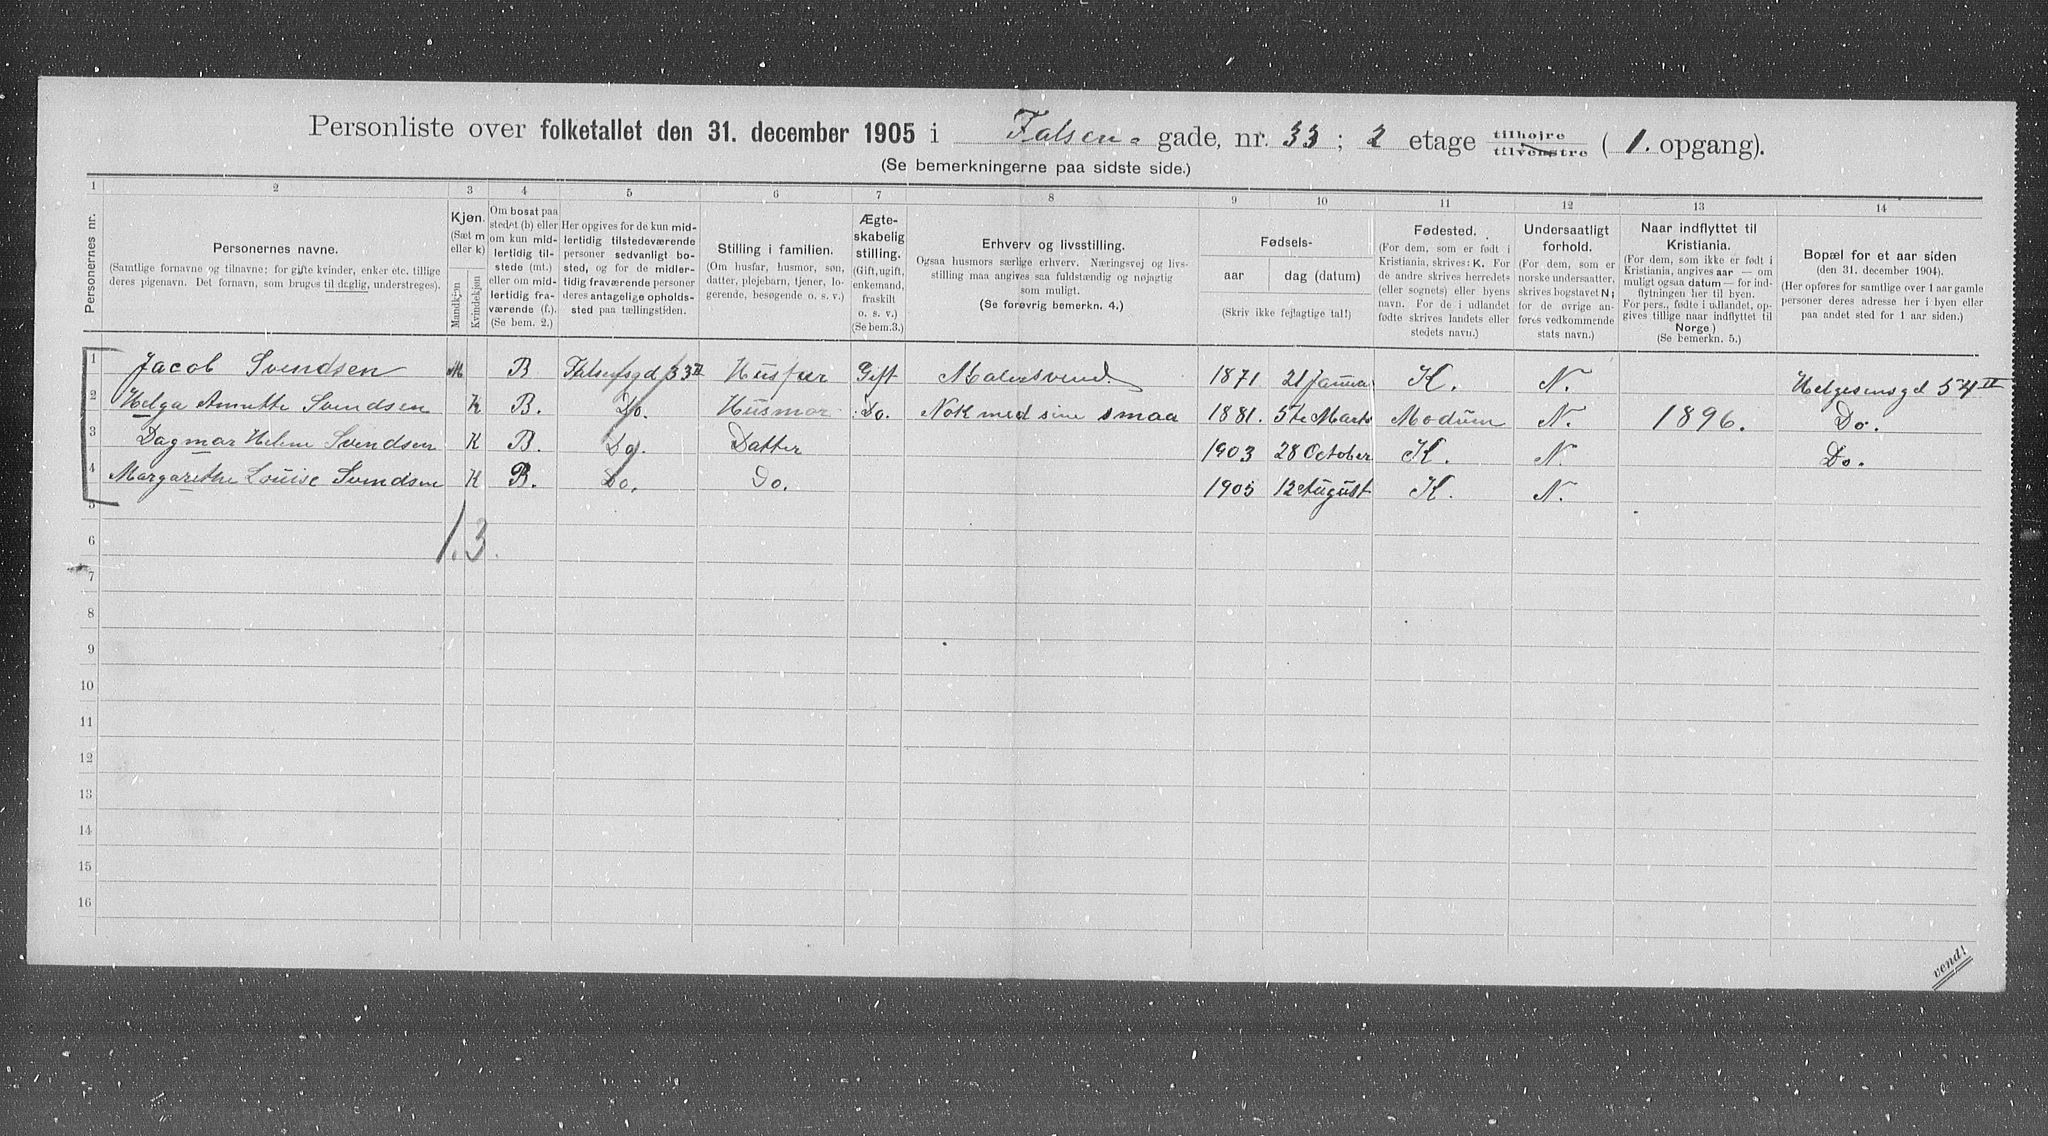 Personliste over folketallet den 31. december 1905 i Falsens gade, nr. 33; 2 etage tilhøjre tilvenstre (1. opgang).
(Se bemerkningerne paa sidste side.)
1 2 3 4 5 6 7 8 9 10 11 12 13 14
Personernes nr.
Personernes navne.
(Samtlige fornavne og tilnavne; for gifte kvinder, enker etc. tillige
deres pigenavn. Det fornavn, som bruges til daglig, understreges).
Kjøn.
(Sæt m
eller k)
Mandkjøn
Kvindekjøn
Om bosat paa
stedet (b) eller
om kun mid-
lertidig til-
stede (mt.)
eller om mid-
lertidig fra-
værende (f.).
(Se bem. 2.)
Her opgives for de kun mid-
lertidig tilstedeværende
personer sedvanligt bo-
sted, og for de midler-
tidig fraværende personer
deres antagelige opholds-
sted paa tællingstiden.
Stilling i familien.
(Om husfar, husmor, søn,
datter, plejebarn, tjener, lo-
gerende, besøgende o. s. v.)
Ægte-
skabelig
stilling.
(Gift, ugift,
enkemand,
fraskilt
o. s. v.)
(Se bem.3.)
Erhverv og livsstilling.
Ogsaa husmors særlige erhverv. Næringsvej og livs-
stilling maa angives saa fuldstændig og nøjagtig
som muligt.
(Se forøvrig bemerkn. 4.)
Fødsels-
aar dag (datum)
(Skriv ikke fejlagtige tal!)
Fødested.
(For dem, som er født i
Kristiania, skrives: K. For
de andre skrives herredets
(eller sognets) eller byens
navn. For de i udlandet
fødte skrives landets eller
stedets navn.)
Undersaatligt
forhold.
(For dem, som er
norske undersaatter,
skrives bogstavet N;
for de øvrige an-
føres vedkommende
stats navn.)
Naar indflyttet til
Kristiania.
(For dem, som ikke er født i
Kristiania, angives aar — om
muligt ogsaa datum — for ind-
flytningen her til byen.
For pers., fødte i udlandet, op-
gives tillige naar indflyttet til
Norge)
(Se bemerkn. 5.)
Bopæl for et aar siden
(den 31. december 1904).
(Her opføres for samtlige over 1 aar gamle
personer deres adresse her i byen eller
paa andet sted for 1 aar siden.)
1 Jacob Svendsen M B Falsensgd 33 II Husfar Gift Malersvend. 1871 21 Janua K. N. Helgesensgd 54 II
2 Helga Annette Svendsen K B. Do. Husmor Do. Nok med sine smaa 1881. 5te Marts Modum N. 1896. Do.
3 Dagmar Helene Svendsen K B. Do. Datter 1903 28 October K. N. Do.
4 Margarethe Louise Svendsen K B. Do. Do. 1905 12 August K. N.
5
1. 3.
6
7
8
9
10
11
12
13
14
15
16
vend!